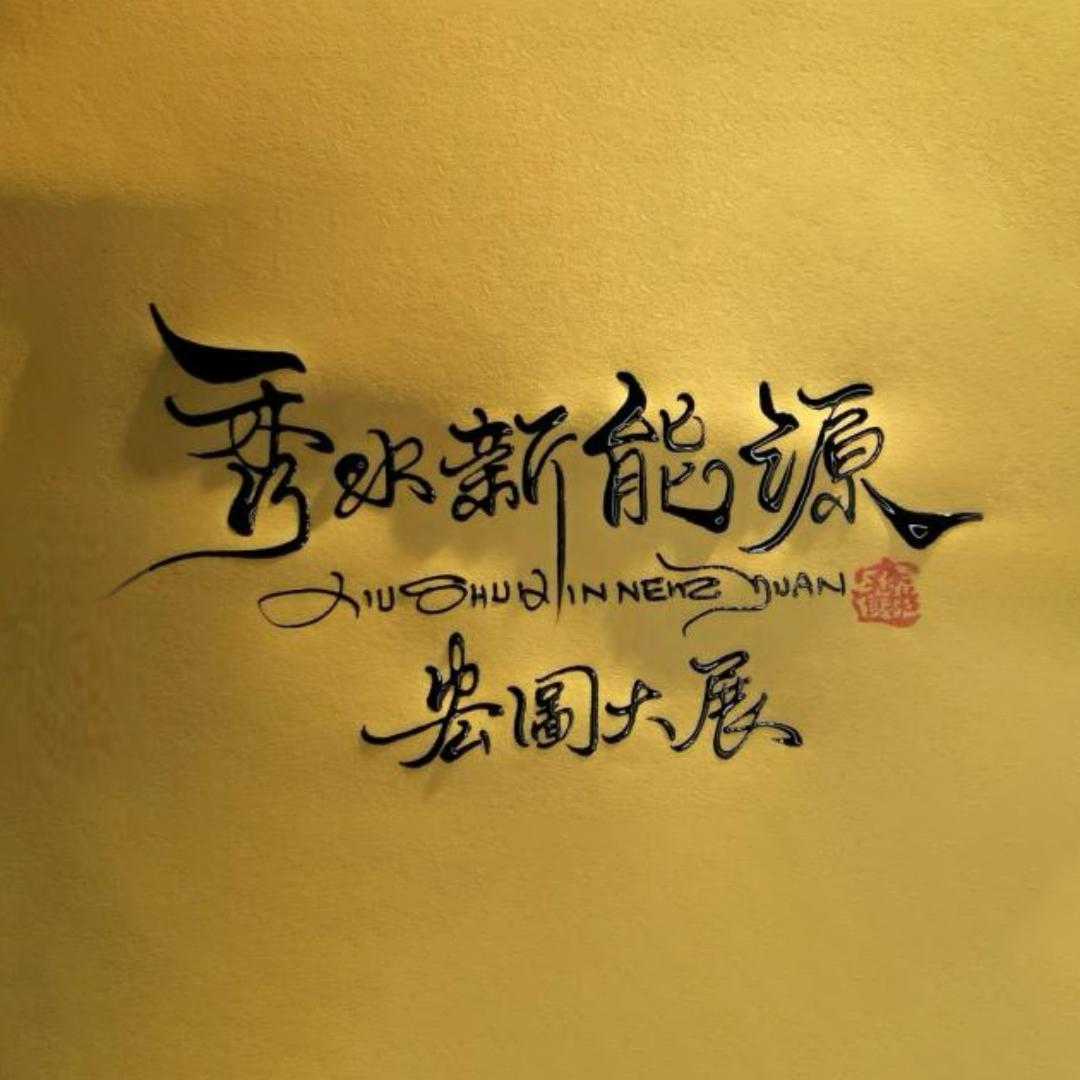 秀水新能源
XIU SHUI XIN NENG YUAN
宏圖大展